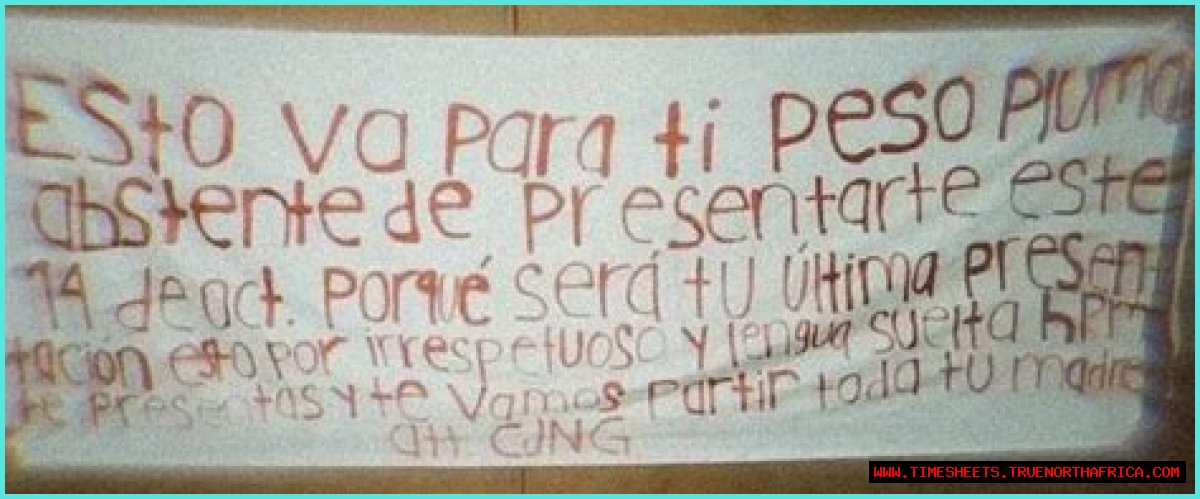 Esto va para ti peso pluma
abstente de presentarte este
14 de oct. porqué será tu última presen-
tación esto por irrespetuoso y lengua suelta hp
te presentas y te vamos partir toda tu madre
att CJNG
WWW.TIMESHEETS.TRUENORTHAFRICA.COM